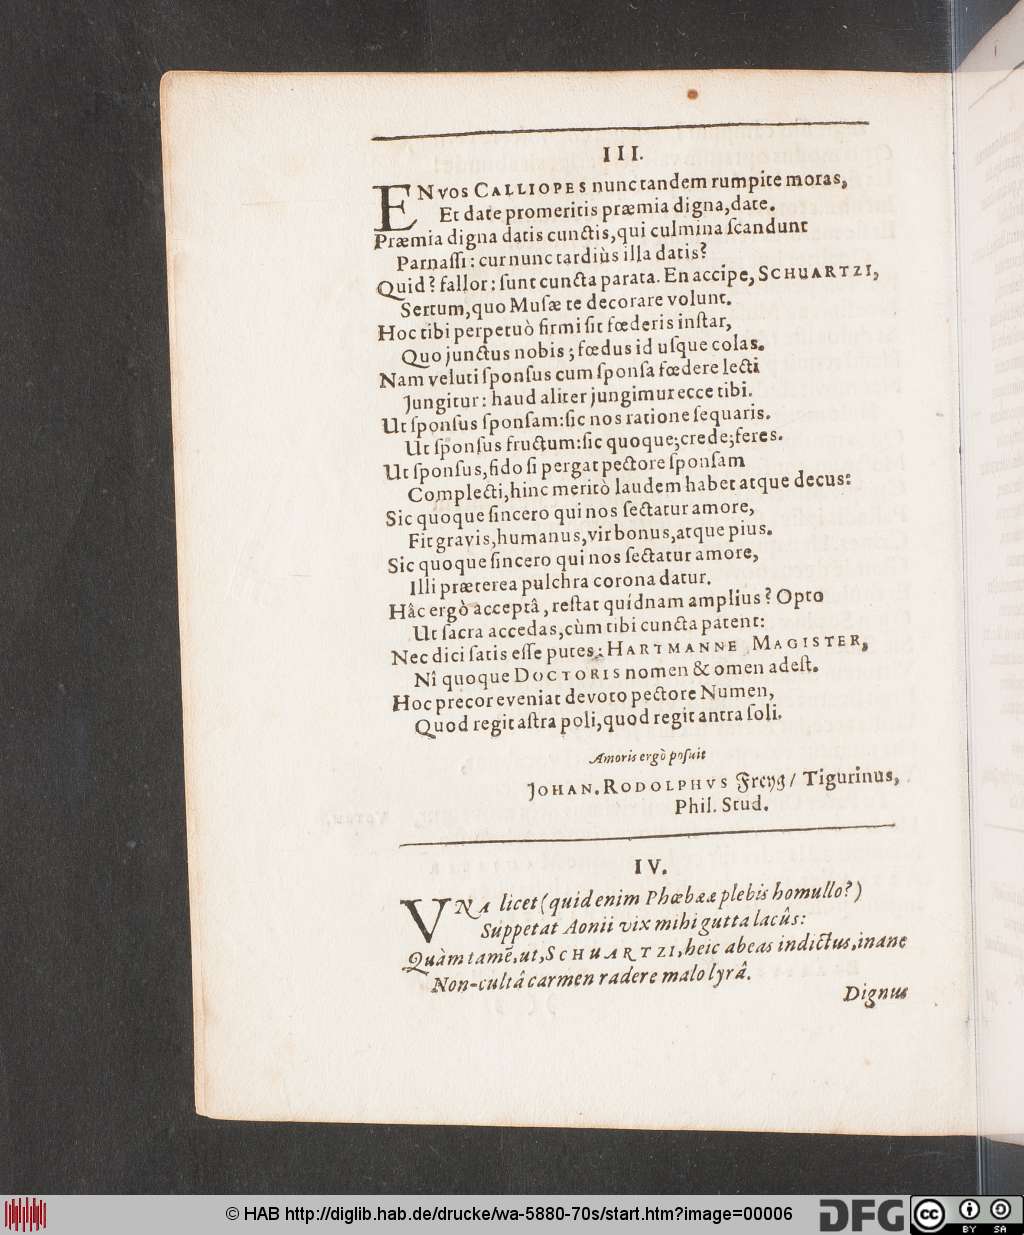 III.
EN vos CALLIOPES nunc tandem rumpite moras,
Et date promeritis præmia digna, date.
Præmia digna datis cunctis, qui culmina ſcandunt
Parnaſſi: cur nunc tardiùs illa datis?
Quid? fallor: ſunt cuncta parata. En accipe, SCHUARTZI,
Sertum, quo Muſæ te decorare volunt.
Hoc tibi perpetuò firmi ſit fœderis inſtar,
Quo junctus nobis; fœdus id uſque colas.
Nam veluti ſponſus cum ſponſa fœdere lecti
Jungitur: haud aliter jungimur ecce tibi.
Ut ſponſus ſponſam: ſic nos ratione ſequaris.
Ut ſponſus fructum: ſic quoque; crede; feres.
Ut ſponſus, fido ſi pergat pectore ſponſam
Complecti, hinc meritò laudem habet atque decus:
Sic quoque ſincero qui nos ſectatur amore,
Fit gravis, humanus, vir bonus, atque pius.
Sic quoque ſincero qui nos ſectatur amore,
Illi præterea pulchra corona datur.
Hâc ergò acceptâ, reſtat quidnam amplius? Opto
Ut ſacra accedas, cùm tibi cuncta patent:
Nec dici ſatis eſſe putes: HARTMANNE MAGISTER,
Nî quoque DOCTORIS nomen & omen adeſt.
Hoc precor eveniat devoto pectore Numen,
Quod regit aſtra poli, quod regit antra ſoli.
Amoris ergò poſuit
JOHAN. RODOLPHVS Freyg/ Tigurinus,
Phil. Stud.
IV.
VNA licet (quid enim Phœbææ plebis homullo?)
Suppetat Aonii vix mihi gutta lacûs:
Quàm tamē, ut, SCHUARTZI, heic abeas indictus, inane
Non-cultâ carmen radere malo lyrâ.
Dignus
© HAB http://diglib.hab.de/drucke/wa-5880-70s/start.htm?image=00006
DFG
cc
BY SA